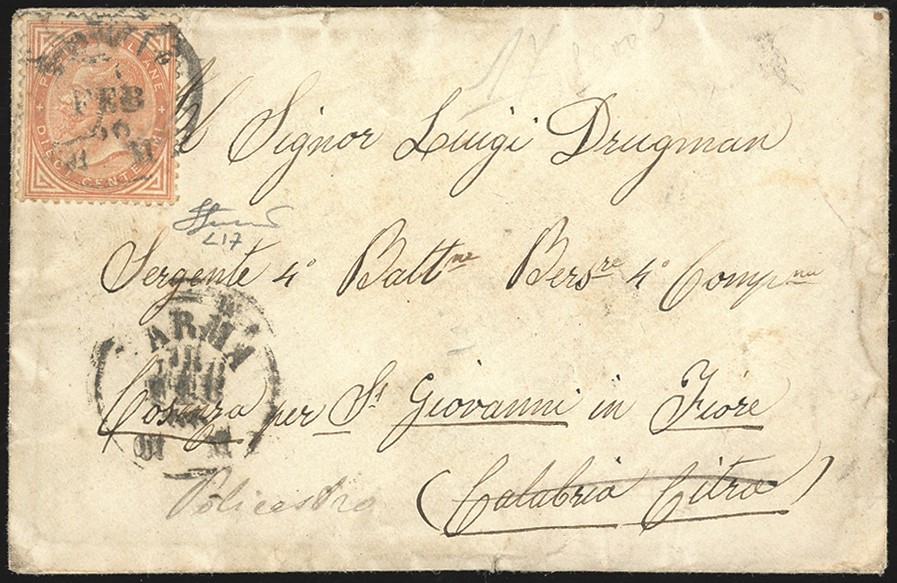 POSTE ITALIANE
DIECI CENTESIMI
FEB
66
M
Al Signor Luigi Drugman
L17
Sergente 4° Batt.ne Bers.re 4° Comp.nia
PARMA
M
Cosenza per S.t Giovanni in Fiore
Policastro (Calabria Citra)